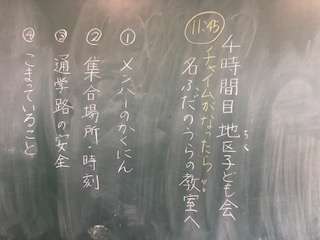 4時間目 地区子ども会
ちく
11:45 チャイムがなったら…
名ふだのうらの教室へ
① メンバーのかくにん
② 集合場所・時刻
③ 通学路の安全
④ こまっていること